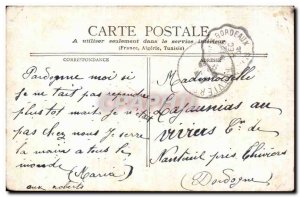 CARTE POSTALE
A utiliser seulement dans le service intérieur
(France, Algérie, Tunisie)
CORRESPONDANCE
Pardonne moi si
je ne tait pas repondre
plustot mais je vites
pas eu le temps
cart y suit seul
chez nous Je serre
la main a tous le
monde (Maria)
aux roberts
BORDEAUX
Mademoiselle
Lajaunias au
viviers Cne de
Nanteuil près Thiviers
(Dordogne)